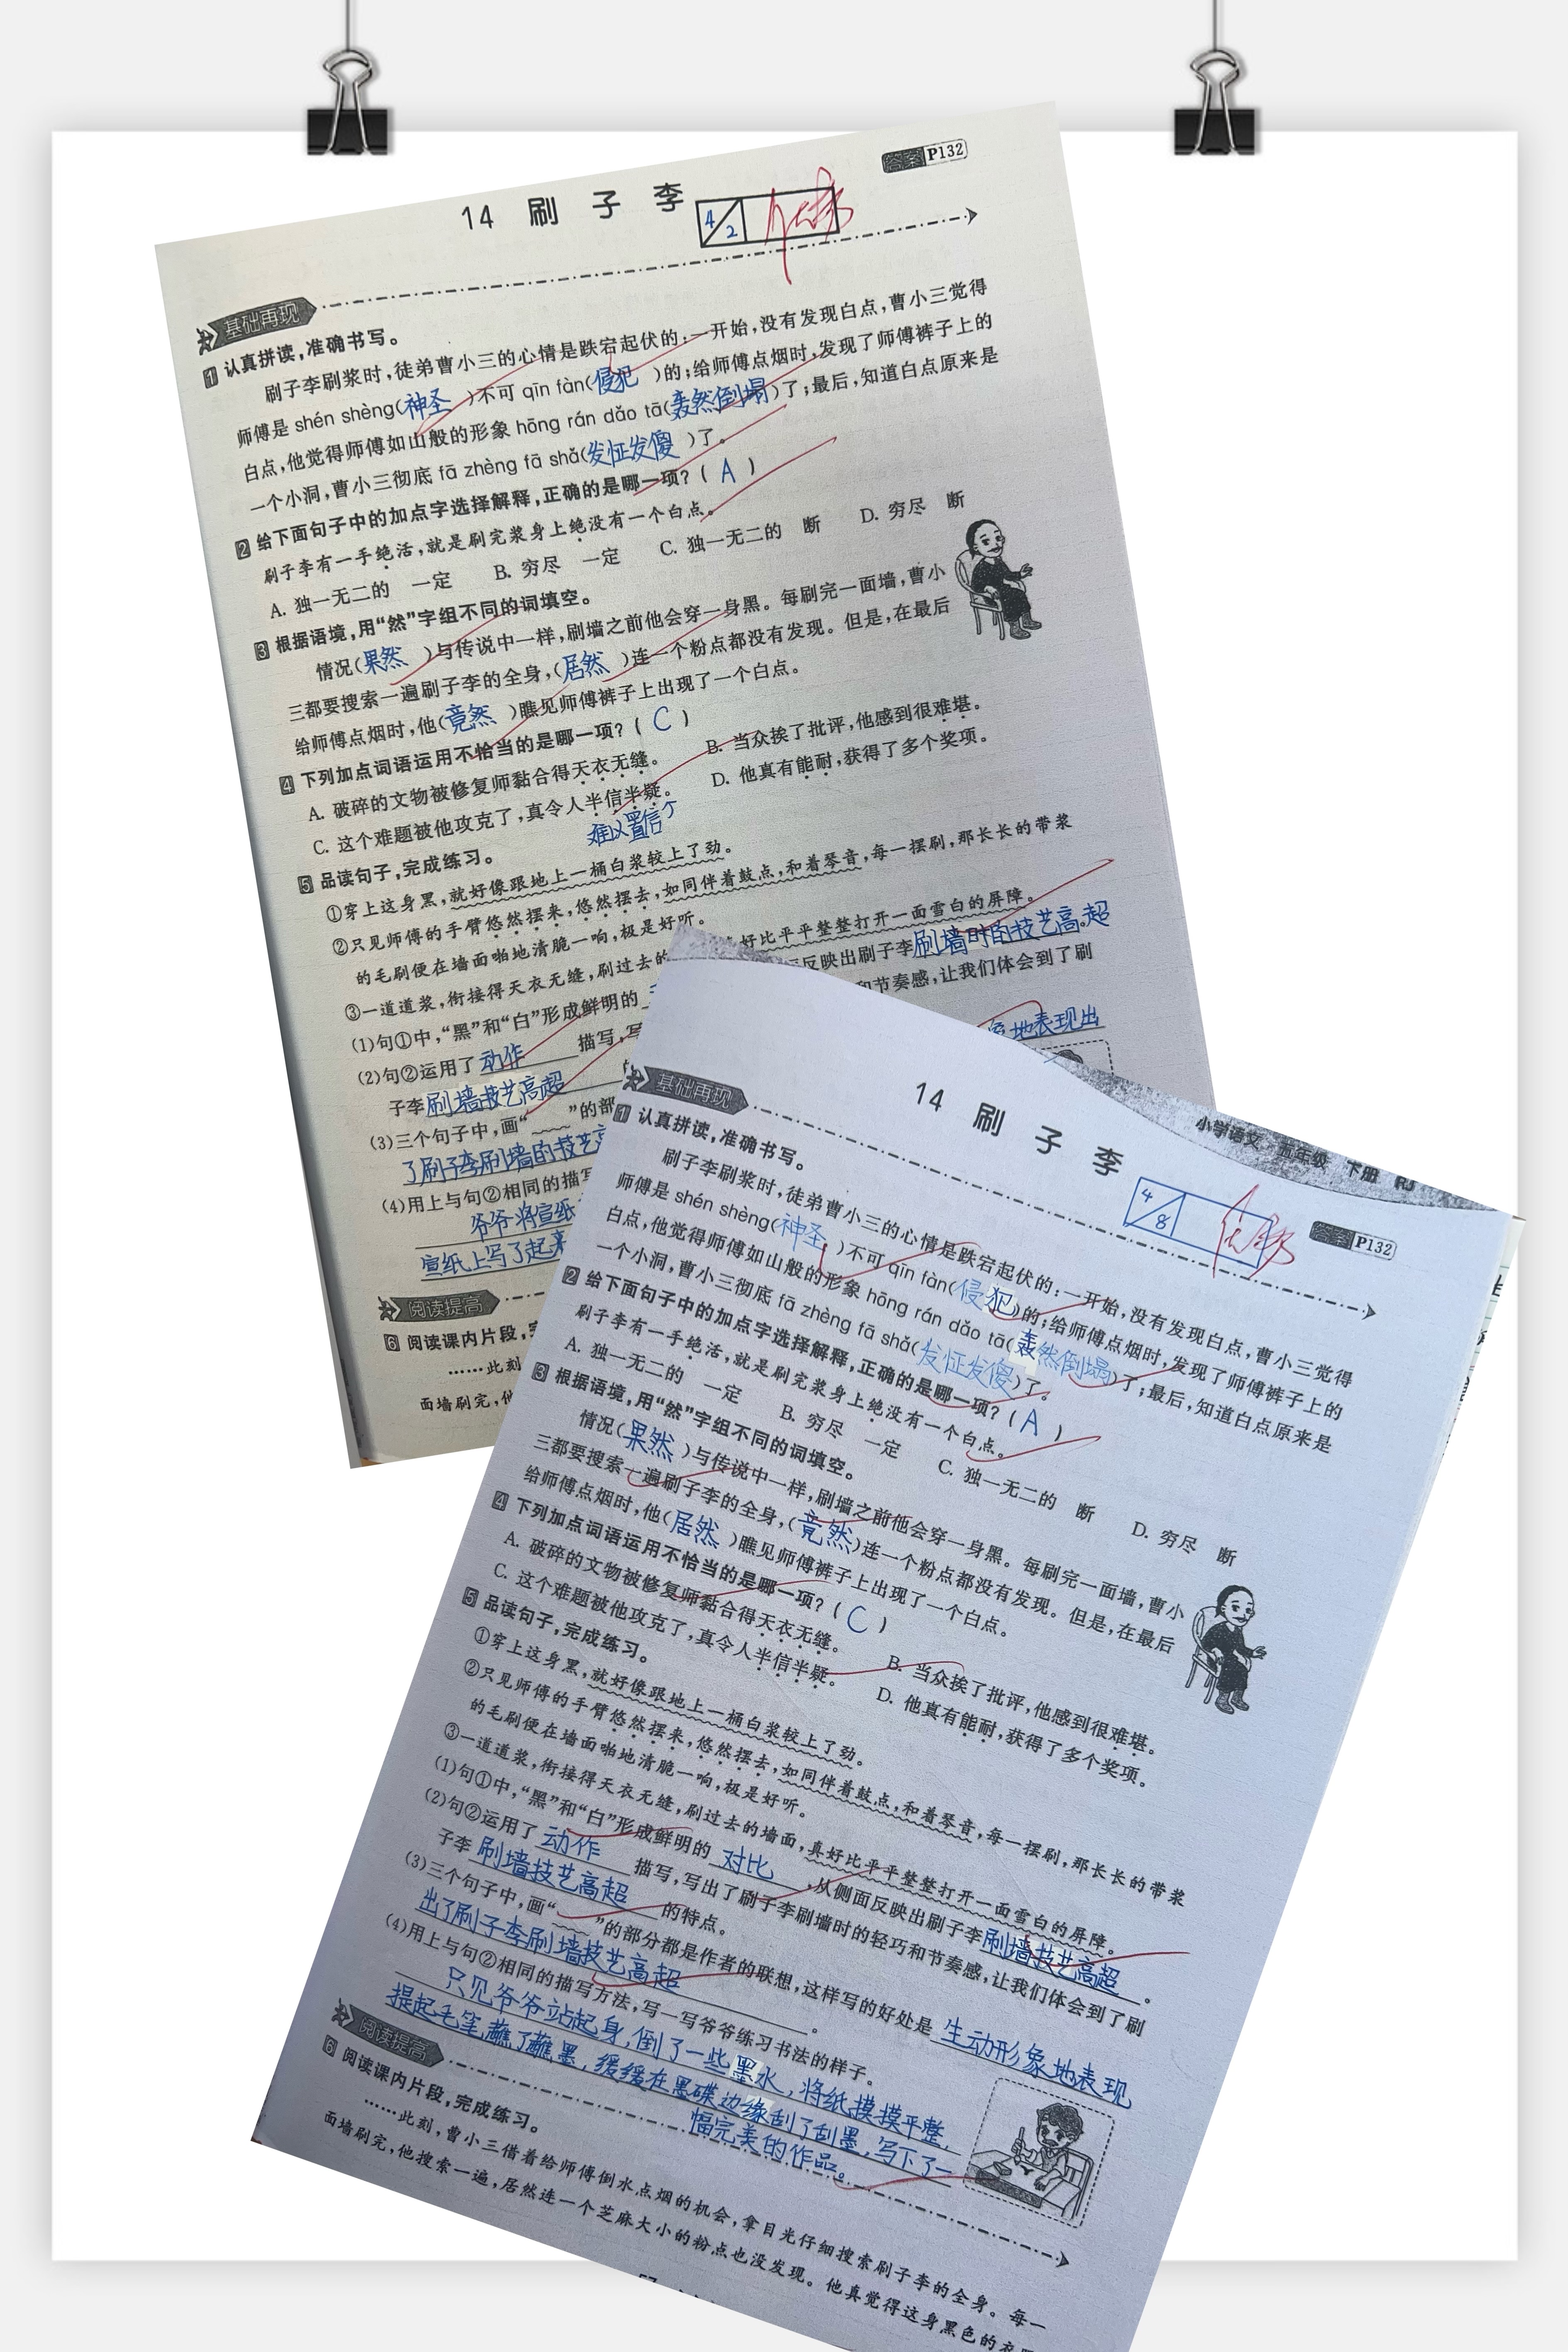 14 刷子李
4/2
答案 P132
基础再现
1 认真拼读,准确书写。
刷子李刷浆时,徒弟曹小三的心情是跌宕起伏的:一开始,没有发现白点,曹小三觉得
师傅是 shén shèng(神圣)不可 qīn fàn(侵犯)的;给师傅点烟时,发现了师傅裤子上的
白点,他觉得师傅如山般的形象 hōng rán dǎo tā(轰然倒塌)了;最后,知道白点原来是
一个小洞,曹小三彻底 fā zhèng fā shǎ(发怔发傻)了。
2 给下面句子中的加点字选择解释,正确的是哪一项?( A )
刷子李有一手绝活,就是刷完浆身上绝没有一个白点。
A. 独一无二的 一定 B. 穷尽 一定 C. 独一无二的 断 D. 穷尽 断
3 根据语境,用“然”字组不同的词填空。
情况(果然)与传说中一样,刷墙之前他会穿一身黑。每刷完一面墙,曹小
三都要搜索一遍刷子李的全身,(居然)连一个粉点都没有发现。但是,在最后
给师傅点烟时,他(竟然)瞧见师傅裤子上出现了一个白点。
4 下列加点词语运用不恰当的是哪一项?( C )
A. 破碎的文物被修复师黏合得天衣无缝。 B. 当众挨了批评,他感到很难堪。
C. 这个难题被他攻克了,真令人半信半疑。 D. 他真有能耐,获得了多个奖项。
难以置信
5 品读句子,完成练习。
①穿上这身黑,就好像跟地上一桶白浆较上了劲。
②只见师傅的手臂悠然摆来,悠然摆去,如同伴着鼓点,和着琴音,每一摆刷,那长长的带浆
的毛刷便在墙面啪地清脆一响,极是好听。
③一道道浆,衔接得天衣无缝,刷过去的 好比平平整整打开一面雪白的屏障。
(1)句①中,“黑”和“白”形成鲜明的 反映出刷子李刷墙时的技艺高超
(2)句②运用了动作描写,写 和节奏感,让我们体会到了刷
子李刷墙技艺高超
(3)三个句子中,画“ ”的部 象地表现出
了刷子李刷墙的技艺高
(4)用上与句②相同的描写
爷爷将宣纸
宣纸上写了起来
阅读提高
6 阅读课内片段,完
……此刻
面墙刷完,他
小学语文 五年级 下册 RJ
14 刷子李
4/8
答案 P132
基础再现
1 认真拼读,准确书写。
刷子李刷浆时,徒弟曹小三的心情是跌宕起伏的:一开始,没有发现白点,曹小三觉得
师傅是 shén shèng(神圣)不可 qīn fàn(侵犯)的;给师傅点烟时,发现了师傅裤子上的
白点,他觉得师傅如山般的形象 hōng rán dǎo tā(轰然倒塌)了;最后,知道白点原来是
一个小洞,曹小三彻底 fā zhèng fā shǎ(发怔发傻)了。
2 给下面句子中的加点字选择解释,正确的是哪一项?( A )
刷子李有一手绝活,就是刷完浆身上绝没有一个白点。
A. 独一无二的 一定 B. 穷尽 一定 C. 独一无二的 断 D. 穷尽 断
3 根据语境,用“然”字组不同的词填空。
情况(果然)与传说中一样,刷墙之前他会穿一身黑。每刷完一面墙,曹小
三都要搜索一遍刷子李的全身,(竟然)连一个粉点都没有发现。但是,在最后
给师傅点烟时,他(居然)瞧见师傅裤子上出现了一个白点。
4 下列加点词语运用不恰当的是哪一项?( C )
A. 破碎的文物被修复师黏合得天衣无缝。 B. 当众挨了批评,他感到很难堪。
C. 这个难题被他攻克了,真令人半信半疑。 D. 他真有能耐,获得了多个奖项。
5 品读句子,完成练习。
①穿上这身黑,就好像跟地上一桶白浆较上了劲。
②只见师傅的手臂悠然摆来,悠然摆去,如同伴着鼓点,和着琴音,每一摆刷,那长长的带浆
的毛刷便在墙面啪地清脆一响,极是好听。
③一道道浆,衔接得天衣无缝,刷过去的墙面,真好比平平整整打开一面雪白的屏障。
(1)句①中,“黑”和“白”形成鲜明的对比,从侧面反映出刷子李刷墙技艺高超。
(2)句②运用了动作描写,写出了刷子李刷墙时的轻巧和节奏感,让我们体会到了刷
子李刷墙技艺高超的特点。
(3)三个句子中,画“ ”的部分都是作者的联想,这样写的好处是生动形象地表现
出了刷子李刷墙技艺高超。
(4)用上与句②相同的描写方法,写一写爷爷练习书法的样子。
只见爷爷站起身,倒了一些墨水,将纸摸摸平整,
提起毛笔,蘸了蘸墨,缓缓在墨碟边缘刮了刮墨,写下了一
幅完美的作品。
阅读提高
6 阅读课内片段,完成练习。
……此刻,曹小三借着给师傅倒水点烟的机会,拿目光仔细搜索刷子李的全身。每一
面墙刷完,他搜索一遍,居然连一个芝麻大小的粉点也没发现。他真觉得这身黑色的衣